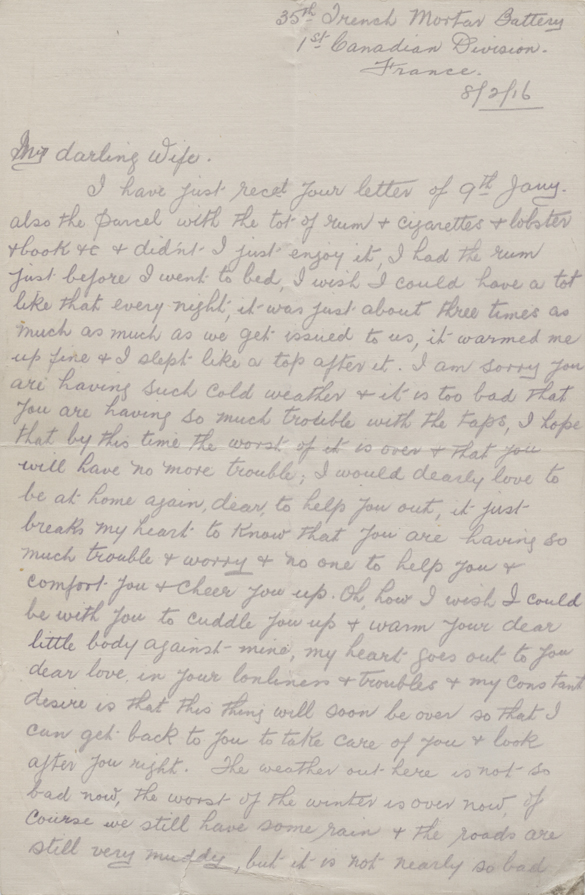 35th Trench Mortar Battery
1st Canadian Division.
France.
8/2/16
My darling Wife.
I have just recd your letter of 9th Jany.
also the parcel with the tot of rum + cigarettes + lobster
+ book &c + didn't I just enjoy it, I had the rum
just before I went to bed, I wish I could have a tot
like that every night, it was just about three times as
much as much as we get issued to us, it warmed me
up fine + I slept like a top after it. I am sorry you
are having such cold weather + it is too bad that
you are having so much trouble with the taps, I hope
that by this time the worst of it is over + that you
will have no more trouble; I would dearly love to
be at home again, dear, to help you out, it just
breaks my heart to know that you are having so
much trouble + worry + no one to help you +
comfort you + cheer you up. Oh, how I wish I could
be with you to cuddle you up + warm your dear
little body against mine, my heart goes out to you
dear love, in your lonliness + troubles + my constant
desire is that this thing will soon be over so that I
can get back to you to take care of you + look
after you right. The weather out here is not so
bad now, the worst of the winter is over now, of
course we still have some rain + the roads are
still very muddy, but it is not nearly so bad